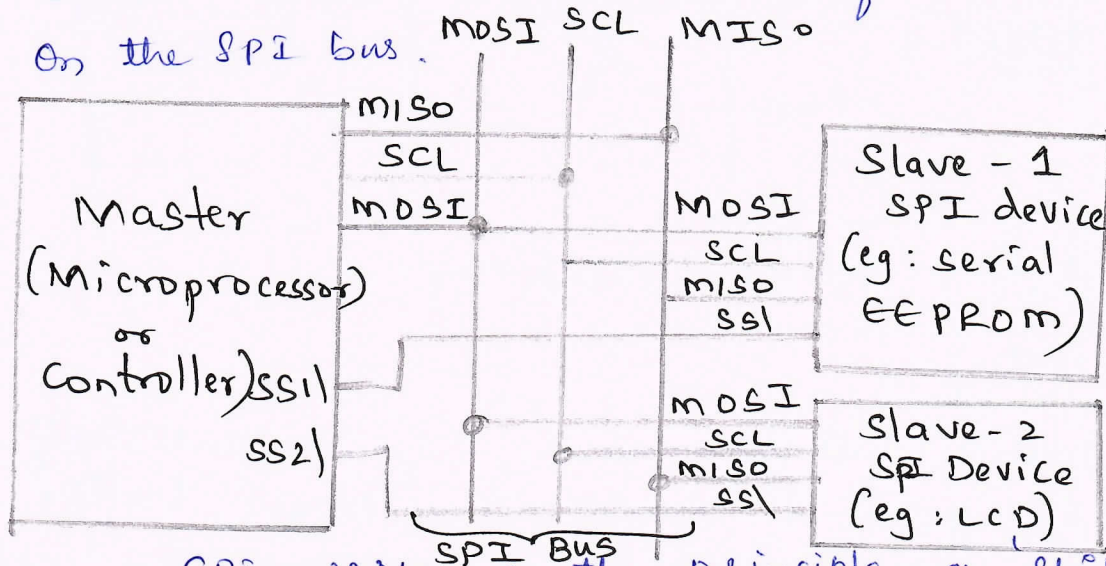 On the SPI bus.
MOSI SCL MISO
MISO
SCL
MOSI
Master
(Microprocessor)
or
Controller)
SS1\
SS2\
MOSI
SCL
MISO
SS\
Slave - 1
SPI device
(eg: serial
EEPROM)
MOSI
SCL
MISO
SS\
Slave - 2
SPI Device
(eg: LCD)
SPI BUS